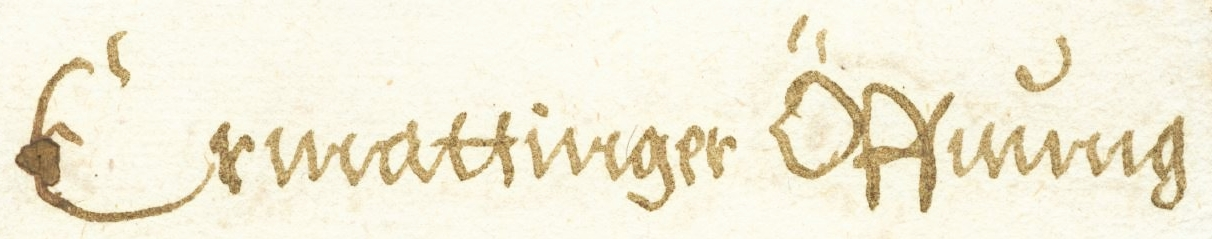 Ermattinger Öffnung